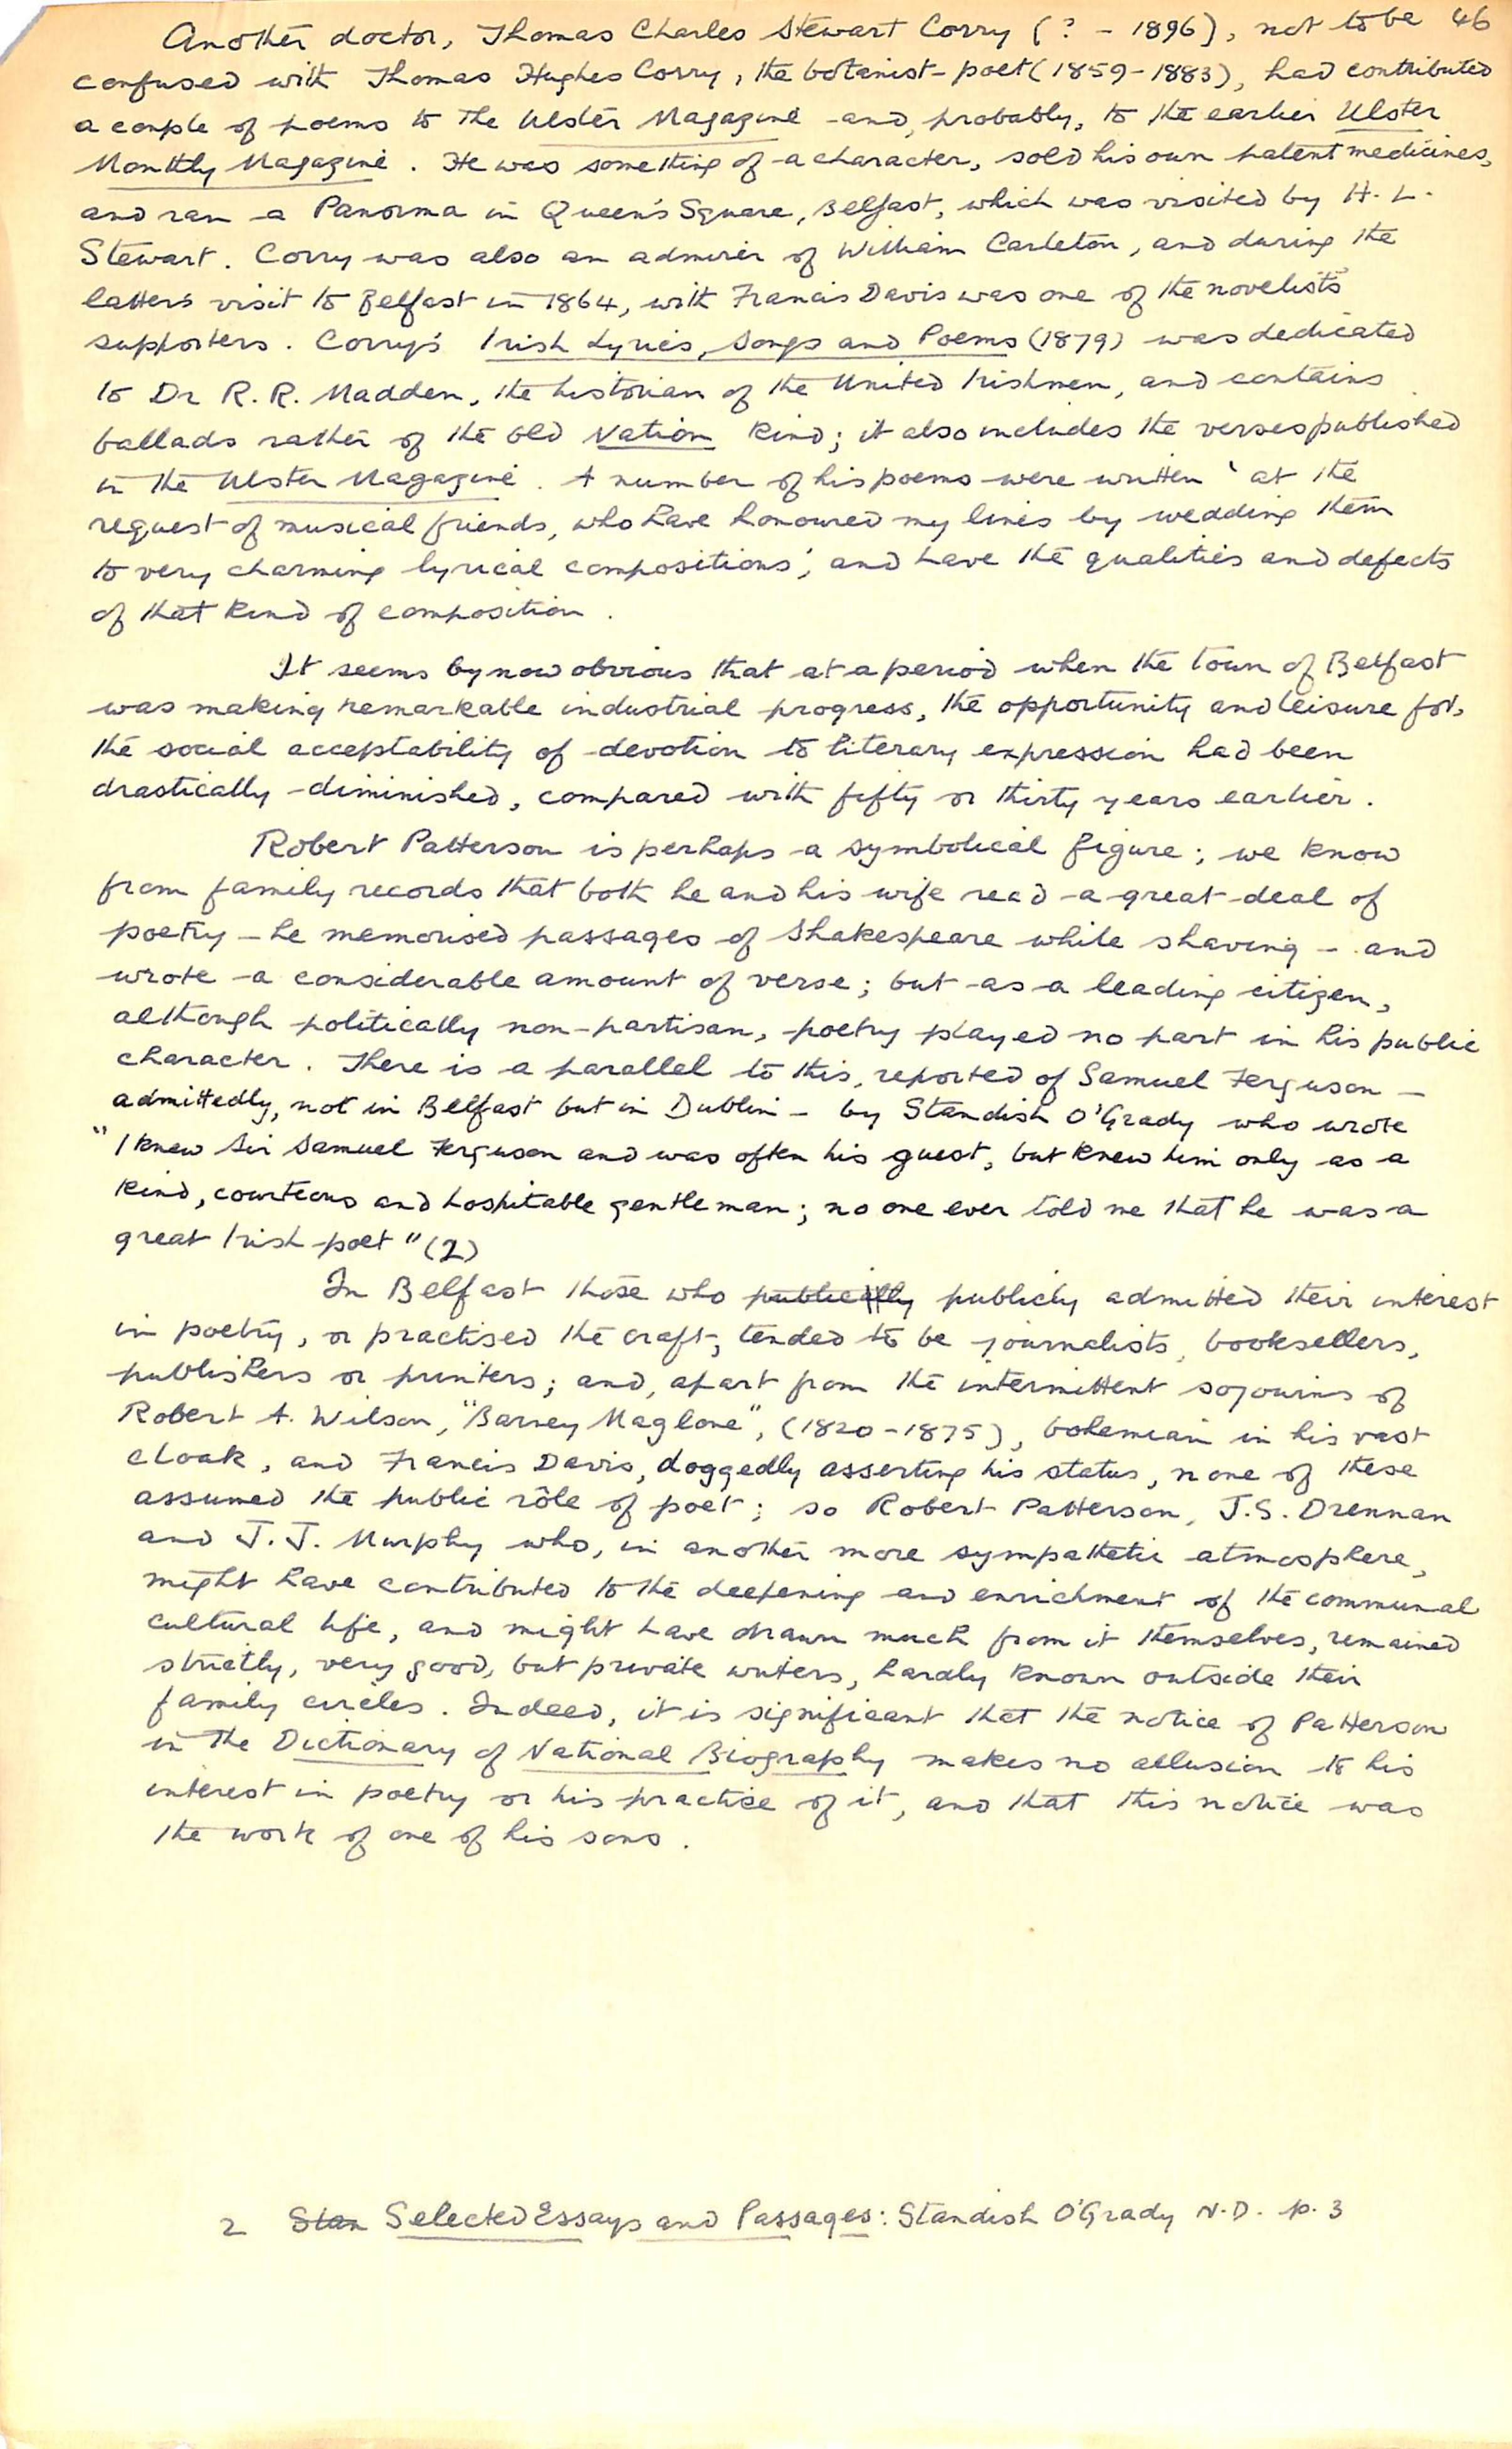 Another doctor, Thomas Charles Stewart Corry (? - 1896), not to be 46
confused with Thomas Hughes Corry, the botanist-poet (1859-1883), had contributed
a couple of poems to the Ulster Magazine and, probably, to the earlier Ulster
Monthly Magazine. He was something of a character, sold his own patent medicines,
and ran a Panorma in Queen's Square, Belfast, which was visited by H. L.
Stewart. Corry was also an admirer of William Carleton, and during the
latter's visit to Belfast in 1864, with Francis Davis was one of the novelist's
supporters. Corry's Irish Lyrics, Songs and Poems (1879) was dedicated
to Dr R. R. Madden, the historian of the United Irishmen, and contains
ballads rather of the old Nation kind; it also includes the verses published
in the Ulster Magazine. A number of his poems were written 'at the
request of musical friends, who have honoured my lines by wedding them
to very charming lyrical compositions', and have the qualities and defects
of that kind of composition.
It seems by now obvious that at a period when the town of Belfast
was making remarkable industrial progress, the opportunity and leisure for,
the social acceptability of devotion to literary expression had been
drastically diminished, compared with fifty or thirty years earlier.
Robert Patterson is perhaps a symbolical figure; we know
from family records that both he and his wife read a great deal of
poetry - he memorised passages of Shakespeare while shaving - and
wrote a considerable amount of verse; but as a leading citizen,
although politically non-partisan, poetry played no part in his public
character. There is a parallel to this, reported of Samuel Ferguson -
admittedly, not in Belfast but in Dublin - by Standish O'Grady who wrote
"I knew Sir Samuel Ferguson and was often his guest, but knew him only as a
kind, courteous and hospitable gentleman; no one ever told me that he was a
great Irish poet" (2)
In Belfast those who publically publicly admitted their interest
in poetry, or practised the craft, tended to be journalists, booksellers,
publishers or printers; and, apart from the intermittent sojourns of
Robert A. Wilson, "Barney Maglone", (1820-1875), bohemian in his vast
cloak, and Francis Davis, doggedly asserting his status, none of these
assumed the public rôle of poet; so Robert Patterson, J.S. Drennan
and J. J. Murphy who, in another more sympathetic atmosphere,
might have contributed to the deepening and enrichment of the communal
cultural life, and might have drawn much from it themselves, remained
strictly, very good, but private writers, hardly known outside their
family circles. Indeed, it is significant that the notice of Patterson
in the Dictionary of National Biography makes no allusion to his
interest in poetry or his practise of it, and that this notice was
the work of one of his sons.
2 Stan Selected Essays and Passages: Standish O'Grady N.D. p. 3